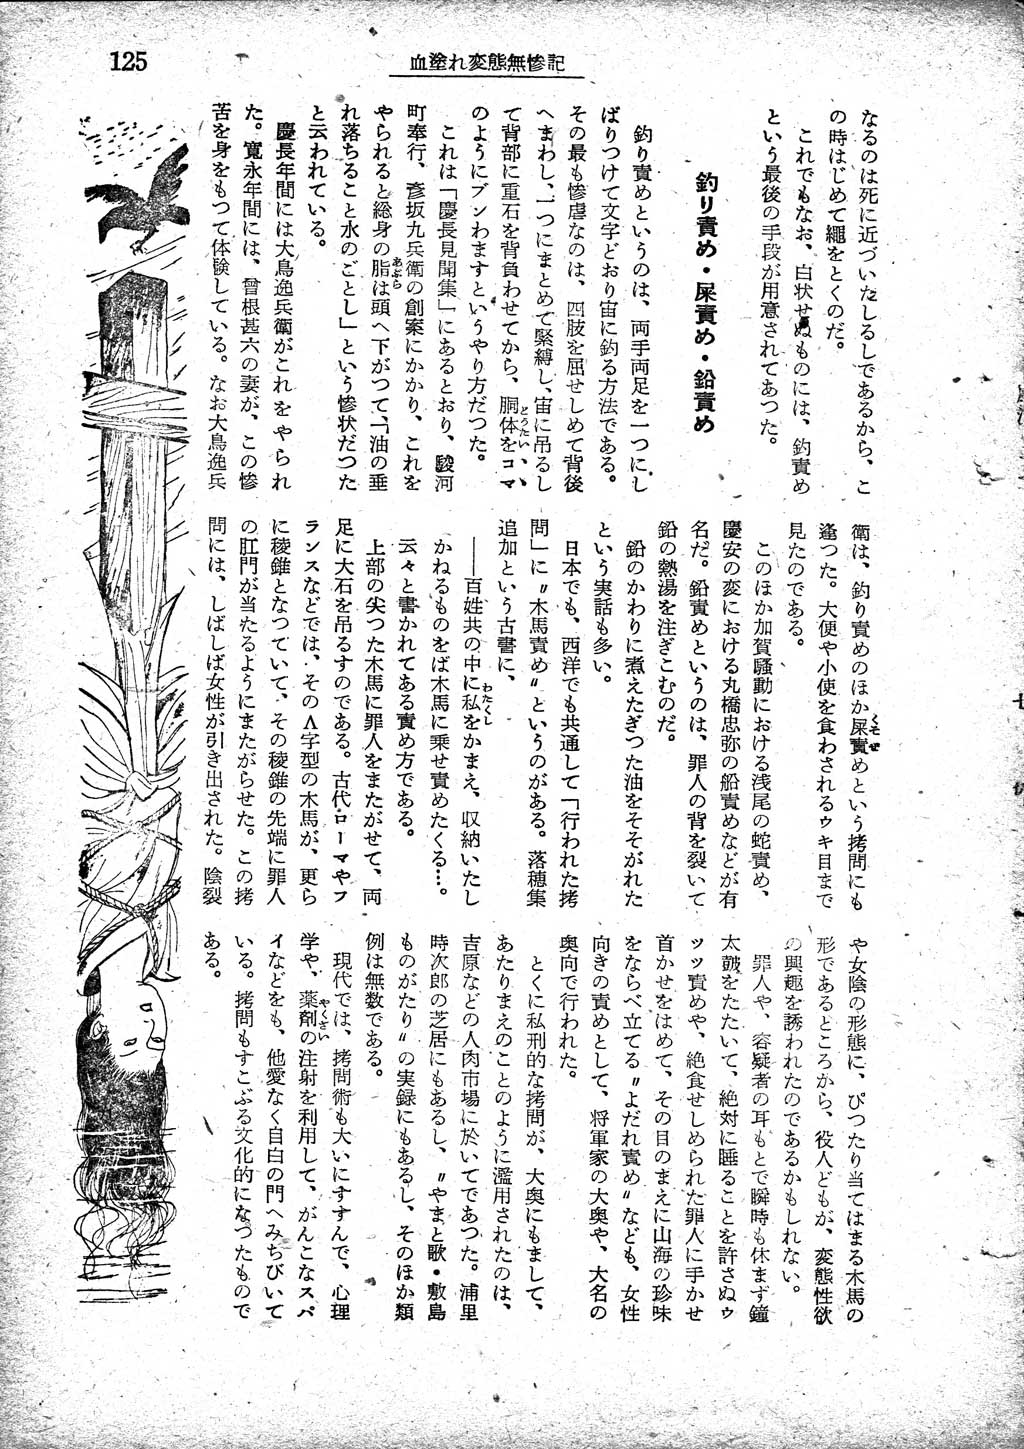 125
血塗れ変態無惨記
なるのは死に近づいたしるしであるから、こ
の時はじめて繩をとくのだ。
これでもなお、白状せぬものには、釣責め
という最後の手段が用意されてあつた。
釣り責め・屎責め・鉛責め
釣り責めというのは、両手両足を一つにし
ばりつけて文字どおり宙に釣る方法である。
その最も惨虐なのは、四肢を屈せしめて背後
へまわし、一つにまとめて緊縛し、宙に吊るし
て背部に重石を背負わせてから、胴体をコマ
のようにブンわますというやり方だつた。
これは「慶長見聞集」にあるとおり、駿河
町奉行、彦坂九兵衛の創案にかかり、これを
やられると総身の脂は頭へ下がつて、「油の垂
れ落ちること水のごとし」という惨状だつた
と云われている。
慶長年間には大鳥逸兵衛がこれをやられ
た。寛永年間には、曾根甚六の妻が、この惨
苦を身をもつて体験している。なお大鳥逸兵
衛は、釣り責めのほか屎責めという拷問にも
逢つた。大便や小便を食わされるウキ目まで
見たのである。
このほか加賀騒動における浅尾の蛇責め、
慶安の変における丸橋忠弥の船責めなどが有
名だ。鉛責めというのは、罪人の背を裂いて
鉛の熱湯を注ぎこむのだ。
鉛のかわりに煮えたぎつた油をそそがれた
という実話も多い。
日本でも、西洋でも共通して「行われた拷
問」に〃木馬責め〃というのがある。落穂集
追加という古書に、
――百姓共の中に私をかまえ、収納いたし
かねるものをば木馬に乗せ責めたくる…。
云々と書かれてある責め方である。
上部の尖つた木馬に罪人をまたがせて、両
足に大石を吊るすのである。古代ローマやフ
ランスなどでは、そのΛ字型の木馬が、更ら
に稜錐となつていて、その稜錐の先端に罪人
の肛門が当たるようにまたがらせた。この拷
問には、しばしば女性が引き出された。陰裂
や女陰の形態に、ぴつたり当てはまる木馬の
形であるところから、役人どもが、変態性欲
の興趣を誘われたのであるかもしれない。
罪人や、容疑者の耳もとで瞬時も休まず鐘
太鼓をたたいて、絶対に睡ることを許さぬウ
ツツ責めや、絶食せしめられた罪人に手かせ
首かせをはめて、その目のまえに山海の珍味
をならべ立てる〃よだれ責め〃なども、女性
向きの責めとして、将軍家の大奥や、大名の
奥向で行われた。
とくに私刑的な拷問が、大奥にもまして、
あたりまえのことのように濫用されたのは、
吉原などの人肉市場に於いてであつた。浦里
時次郎の芝居にもあるし、〃やまと歌・敷島
ものがたり〃の実録にもあるし、そのほか類
例は無数である。
現代では、拷問術も大いにすすんで、心理
学や、薬剤の注射を利用して、がんこなスパ
イなどをも、他愛なく自白の門へみちびいて
いる。拷問もすこぶる文化的になつたもので
ある。